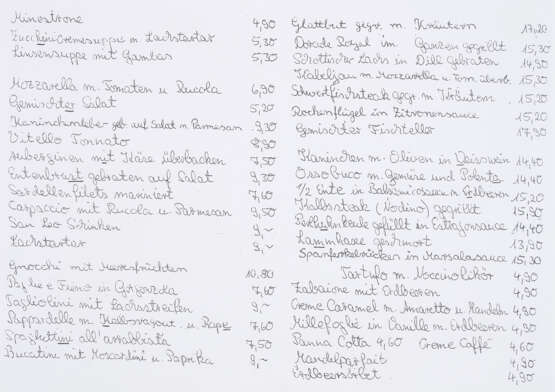 Minestrone 4,90
Zucchinicremesuppe m. Lachstartar 5,30
Linsensuppe mit Gambas 5,30
Mozzarella m. Tomaten u Rucola 6,90
Gemischter Salat 5,20
Kaninchenleber geb. auf Salat m. Parmesan 9,30
Vitello Tonnato 8,90
Auberginen mit Käse überbacken 7,50
Entenbrust gebraten auf Salat 9,30
Sardellenfilets mariniert 7,60
Carpaccio mit Rucola u Parmesan 9,50
San Leo Schinken 9,-
Lachstartar 9,-
Gnocchi mit Meeresfrüchten 10,80
Paglia e Fieno in Gorgonzola 7,60
Tagliolini mit Lachsstreifen 9,-
Pappardelle m. Kalbsragout u. 7,60
Spaghettini all'arrabbiata 7,50
Bucatini mit Moscardini u Paprika 9,-
Glattbut gegr. m. Kräutern 17,20
Dorade Royal im Ganzen gegrillt 15,30
Schottischer Lachs in Dill gebraten 14,90
Kabeljau m. Mozzarella u Tom. überb. 15,30
Schwertfischsteak gegr. m 15,20
Rochenflügel in Zitronensauce 15,20
Gemischter Fischteller 17,90
Kaninchen m. Oliven in Weisswein 14,90
Osso Buco m. Gemüse und Polenta 14,40
1/2 Ente in Balsamicosauce m. Erdbeeren 15,20
Kalbssteak (Nodino) gegrillt 15,90
Perlhuhnkeule gefüllt in Estragonsauce 14,40
Lammhaxe geschmort 13,90
Spanferkelrücken in Marsalasauce 15,30
Tartufo m. Noccinolikör 4,90
Zabaione mit Erdbeeren 4,90
Creme Caramel m. Amaretto u Mandeln 4,90
Millefoglie in Vanille m. Erdbeeren 4,90
Panna Cotta 4,60 Creme Caffé 4,60
Mandelparfait 4,90
Erdbeersorbet 4,90